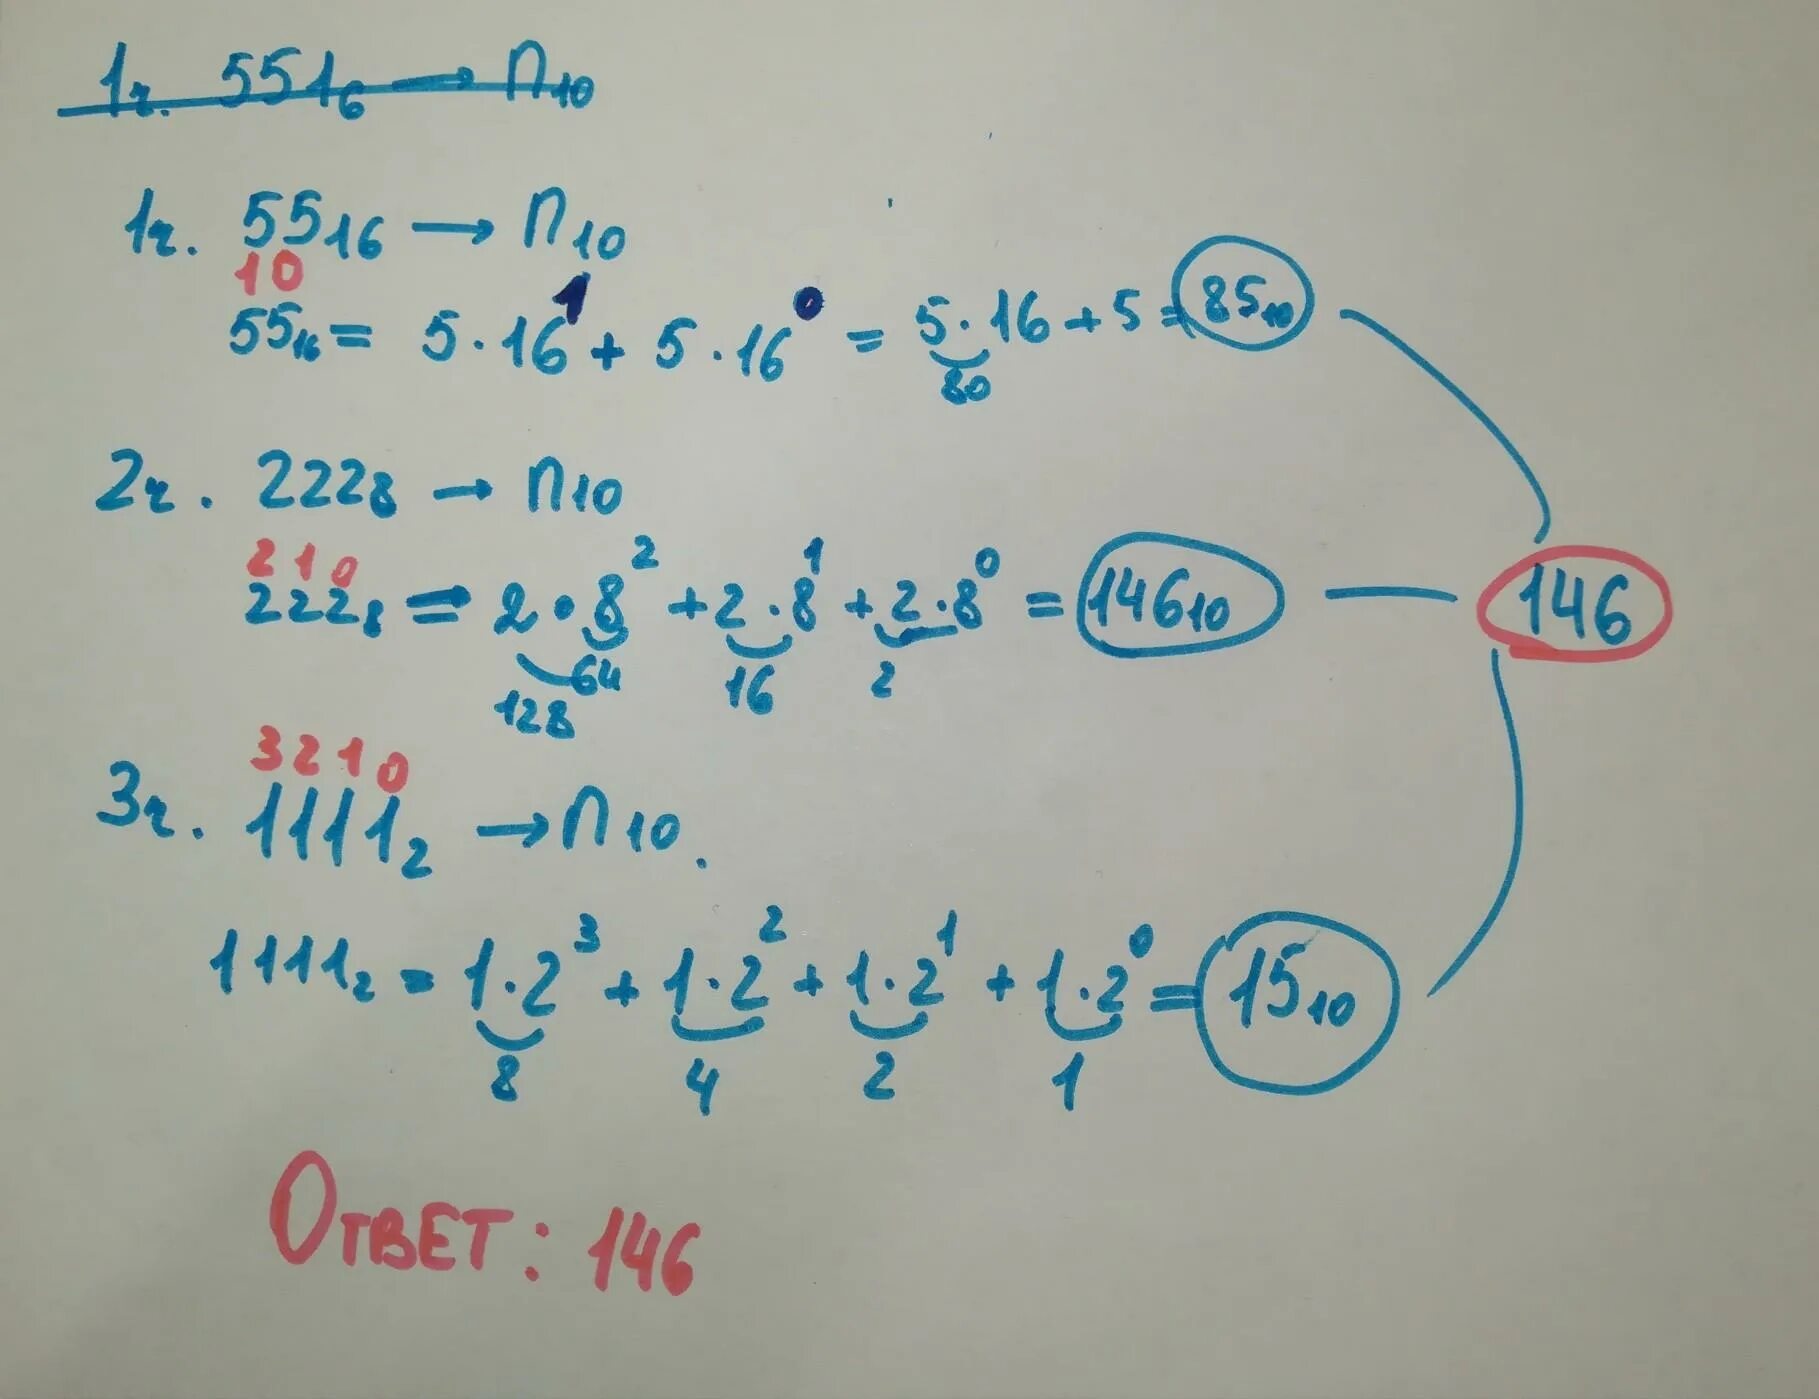 1ч. 551₆ → П₁₀
1ч. 55₁₆ → П₁₀
10
55₁₆ = 5·16¹ + 5·16⁰ = 5·16 + 5 = 85₁₀
80
2ч. 222₈ → П₁₀
210
222₈ = 2·8² + 2·8¹ + 2·8⁰ = 146₁₀ — 146
64 16 2
128
3210
3ч. 1111₂ → П₁₀.
1111₂ = 1·2³ + 1·2² + 1·2¹ + 1·2⁰ = 15₁₀
8 4 2 1
Ответ: 146